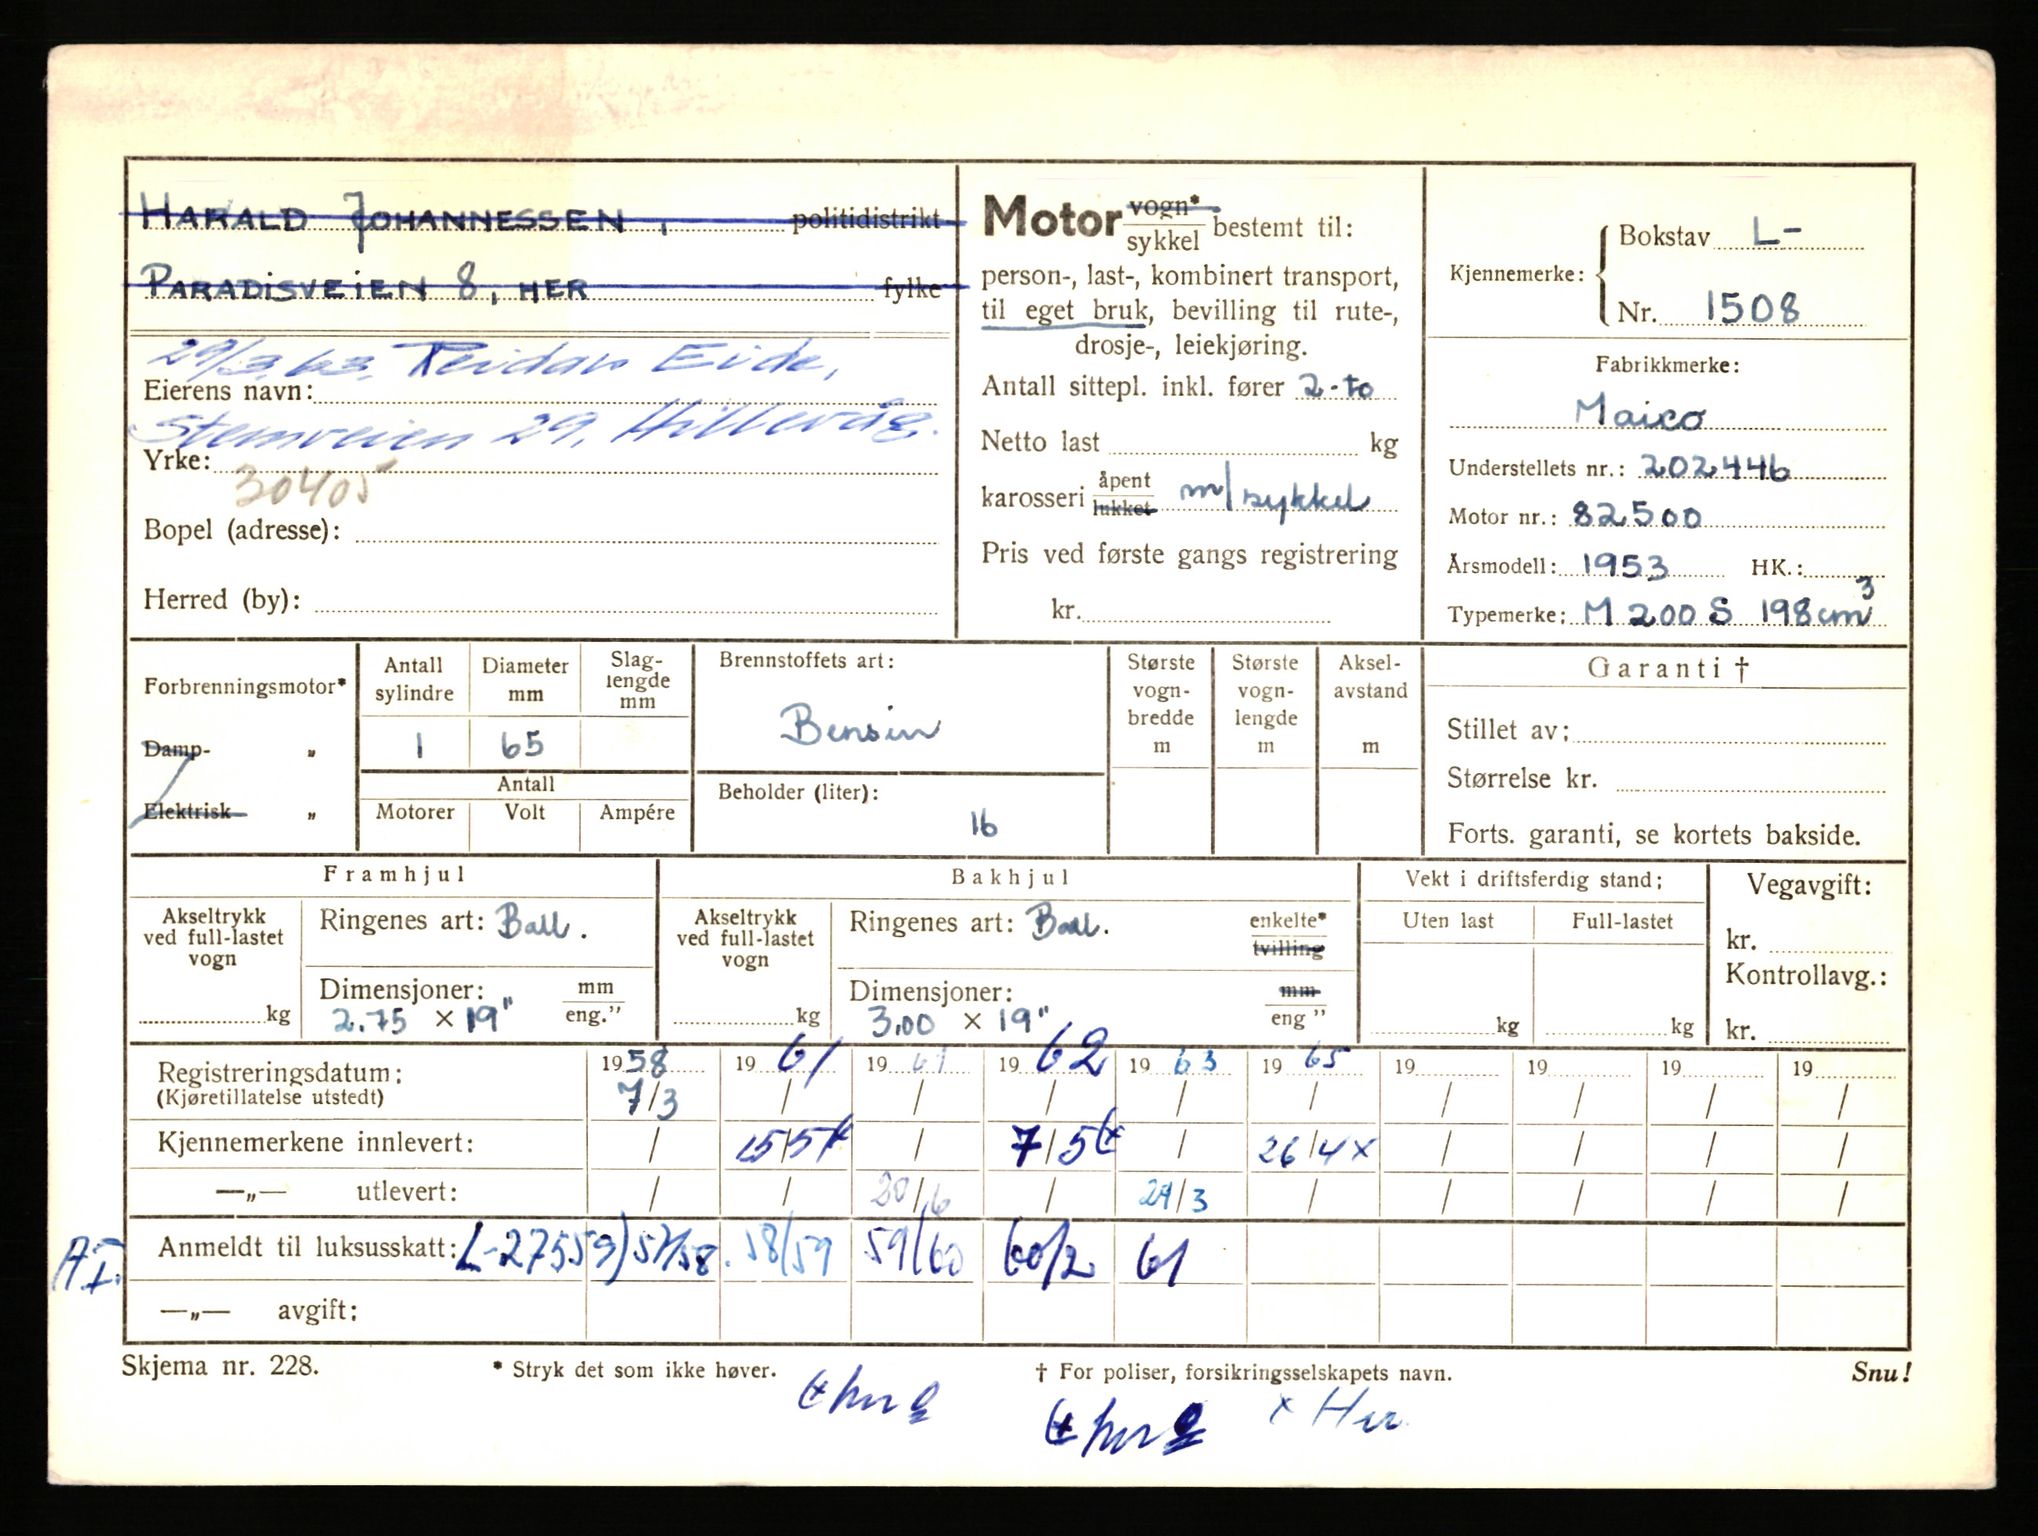 HARALD JOHANNESSEN, politidistrikt
PARADISVEIEN 8, HER fylke
29/3.63. Reidar Eide,
Eierens navn:
Stemveien 29, Hillevåg.
Yrke:
30405
Bopel (adresse):
Herred (by):
Motor vogn* sykkel bestemt til:
person-, last-, kombinert transport,
til eget bruk, bevilling til rute-,
drosje-, leiekjøring.
Antall sittepl. inkl. fører 2-to
Netto last kg
karosseri åpent lukket m/sykkel
Pris ved første gangs registrering
kr.
Kjennemerke: Bokstav L-
Nr. 1508
Fabrikkmerke:
Maico
Understellets nr.: 202446
Motor nr.: 82500
Årsmodell: 1953 HK.:
Typemerke: M 200 S 198 cm3
Forbrenningsmotor*
Damp- „
Elektrisk „
Antall sylindre Diameter mm Slag-lengde mm
1 65
Antall
Motorer Volt Ampére
Brennstoffets art:
Bensin
Beholder (liter):
16
Største vogn-bredde m
Største vogn-lengde m
Aksel-avstand m
Garanti †
Stillet av:
Størrelse kr.
Forts. garanti, se kortets bakside.
Framhjul
Akseltrykk ved full-lastet vogn
kg
Ringenes art: Ball.
Dimensjoner: mm eng.”
2.75 × 19"
Bakhjul
Akseltrykk ved full-lastet vogn
kg
Ringenes art: Ball. enkelte* tvilling
Dimensjoner: mm eng ”
3.00 × 19"
Vekt i driftsferdig stand:
Uten last Full-lastet
kg kg
Vegavgift:
kr.
Kontrollavg.:
kr.
Registreringsdatum: 1958 1961 1961 1962 1963 1965 19 19 19 19
(Kjøretillatelse utstedt) 7/3 / / / / / / / / /
Kjennemerkene innlevert: / 15/5 / 7/5 / 26/4 x / / / /
—„— utlevert: / / 20/6 / 29/3 / / / / /
AI. Anmeldt til luksusskatt: L-27559) 57/58. 58/59 59/60 60/2 61
—„— avgift:
Skjema nr. 228. * Stryk det som ikke høver. † For poliser, forsikringsselskapets navn. Snu!
x Her